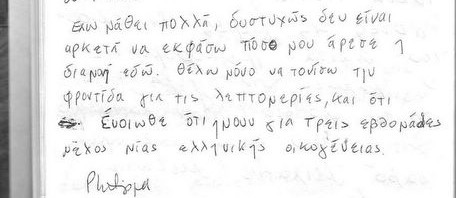 Έχω μάθει πολλή, δυστυχώς δεν είναι
αρκετή να εκφάσω πόσο μου άρεσε η
διαμονή εδώ. Θέλω μόνο να τονίσω την
φροντίδα για τις λεπτομερίες, και ότι
Ένοιωθε ότι ήμουν για τρεις εβδομάδες
μέχος μίας αλληνικής οικογένειας.